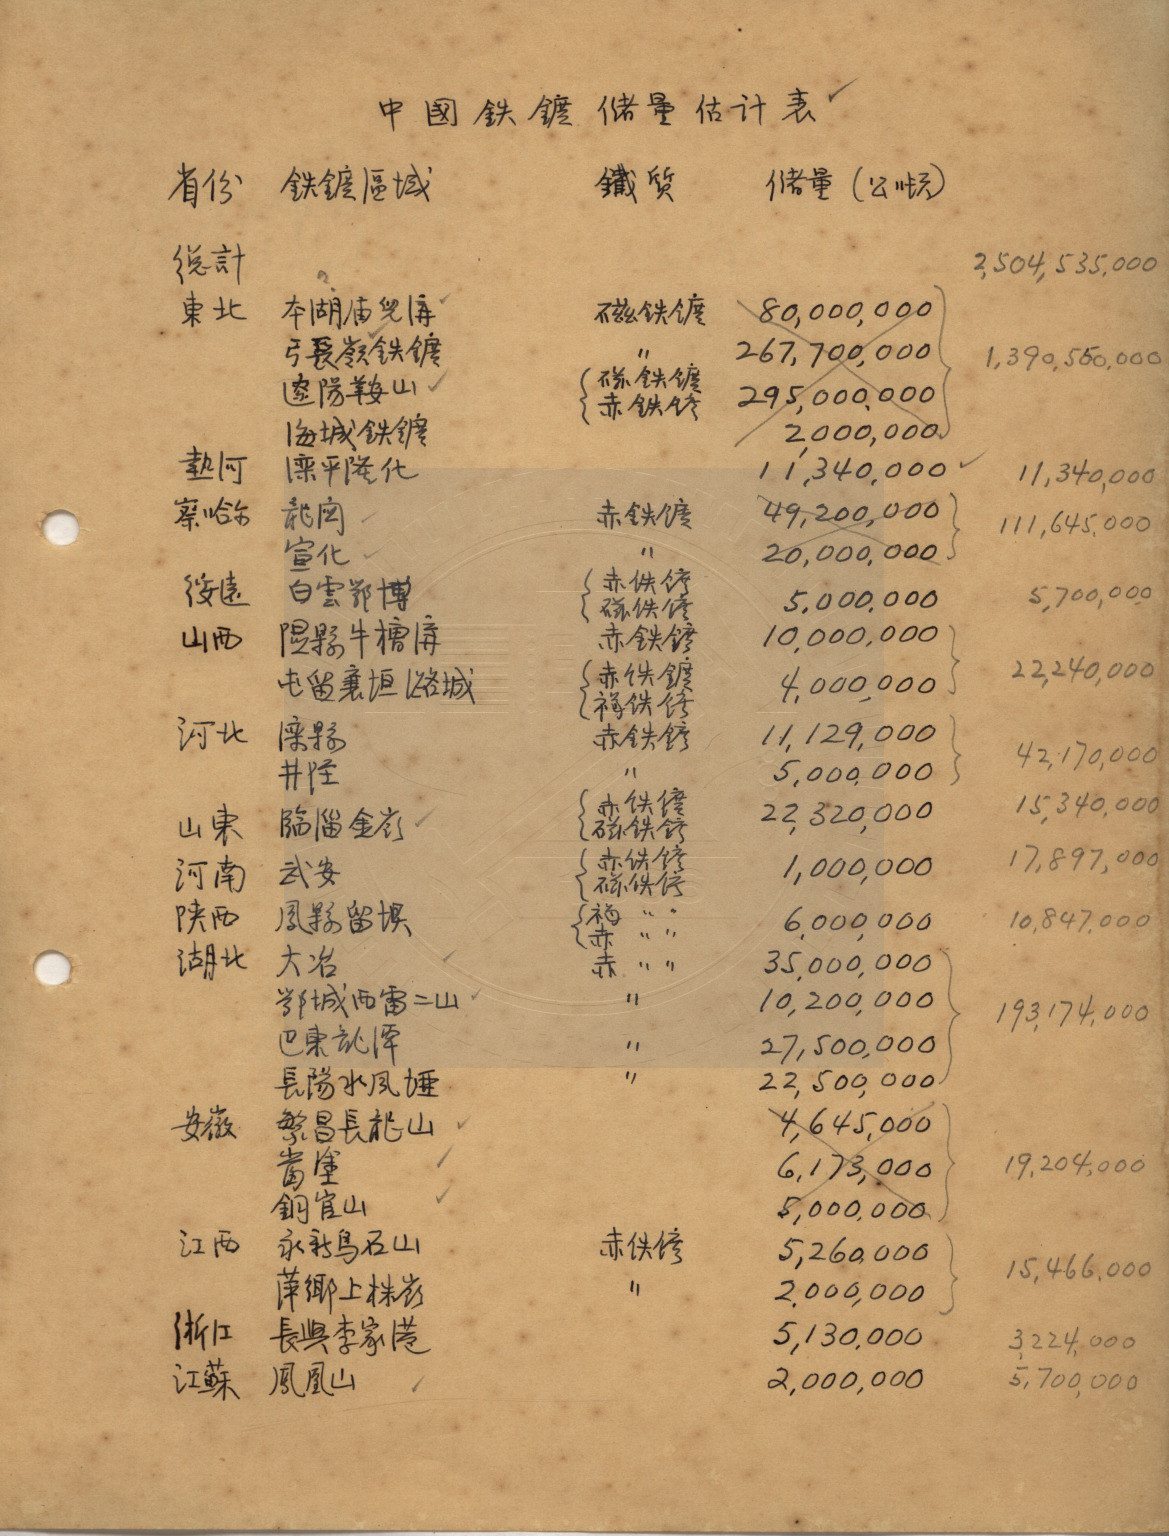 中國鉄鑛儲量估计表
省份 鉄鑛區域 鐵质 儲量(公吨)
總計 2,504,535,000
東北 本湖庙兒溝 磁鉄鑛 80,000,000
弓長嶺鉄鑛 〃 267,700,000 1,390,550,000
遼陽鞍山 磁鉄鑛 赤鉄鑛 295,000,000
海城鉄鑛 2,000,000
熱河 滦平隆化 11,340,000 11,340,000
察哈尔 龍関 赤鉄鑛 49,200,000 111,645,000
宣化 〃 20,000,000
绥遠 白雲鄂博 赤鉄鑛 磁鉄鑛 5,000,000 5,700,000
山西 隰縣牛槽溝 赤鉄鑛 10,000,000
屯留襄垣潞城 赤鉄鑛 褐鉄鑛 4,000,000 22,240,000
河北 滦縣 赤鉄鑛 11,129,000
井陘 〃 5,000,000 42,170,000
山東 臨淄金岭 赤鉄鑛 磁鉄鑛 22,320,000 15,340,000
河南 武安 赤鉄鑛 磁鉄鑛 1,000,000 17,897,000
陕西 鳳縣留埧 褐 〃 〃 赤 〃 〃 6,000,000 10,847,000
湖北 大冶 赤 〃 〃 35,000,000
鄂城西雷二山 〃 10,200,000 193,174,000
巴東龍潭 〃 27,500,000
長陽水風埡 〃 22,500,000
安徽 繁昌長龍山 4,645,000
當塗 6,173,000 19,204,000
銅官山 5,000,000
江西 永新烏石山 赤鉄鑛 5,260,000
萍鄉上株岭 〃 2,000,000 15,466,000
浙江 長興李家港 5,130,000 3,224,000
江蘇 鳳凰山 2,000,000 5,700,000